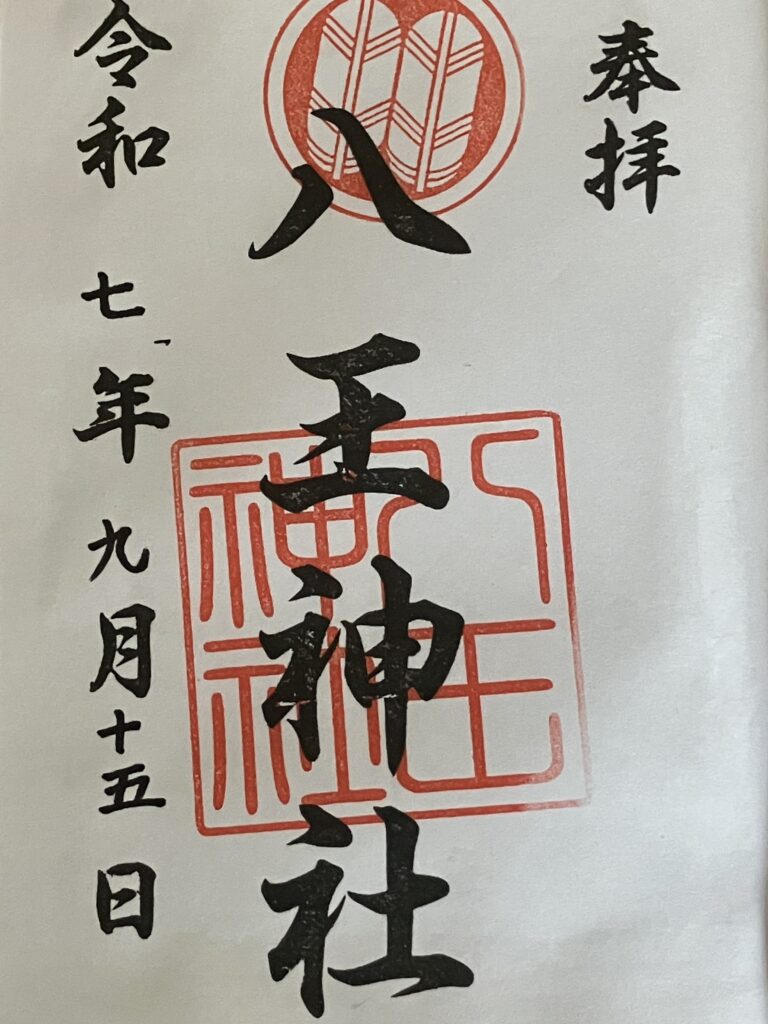 奉拝
八王神社
八王神社
令和七年九月十五日